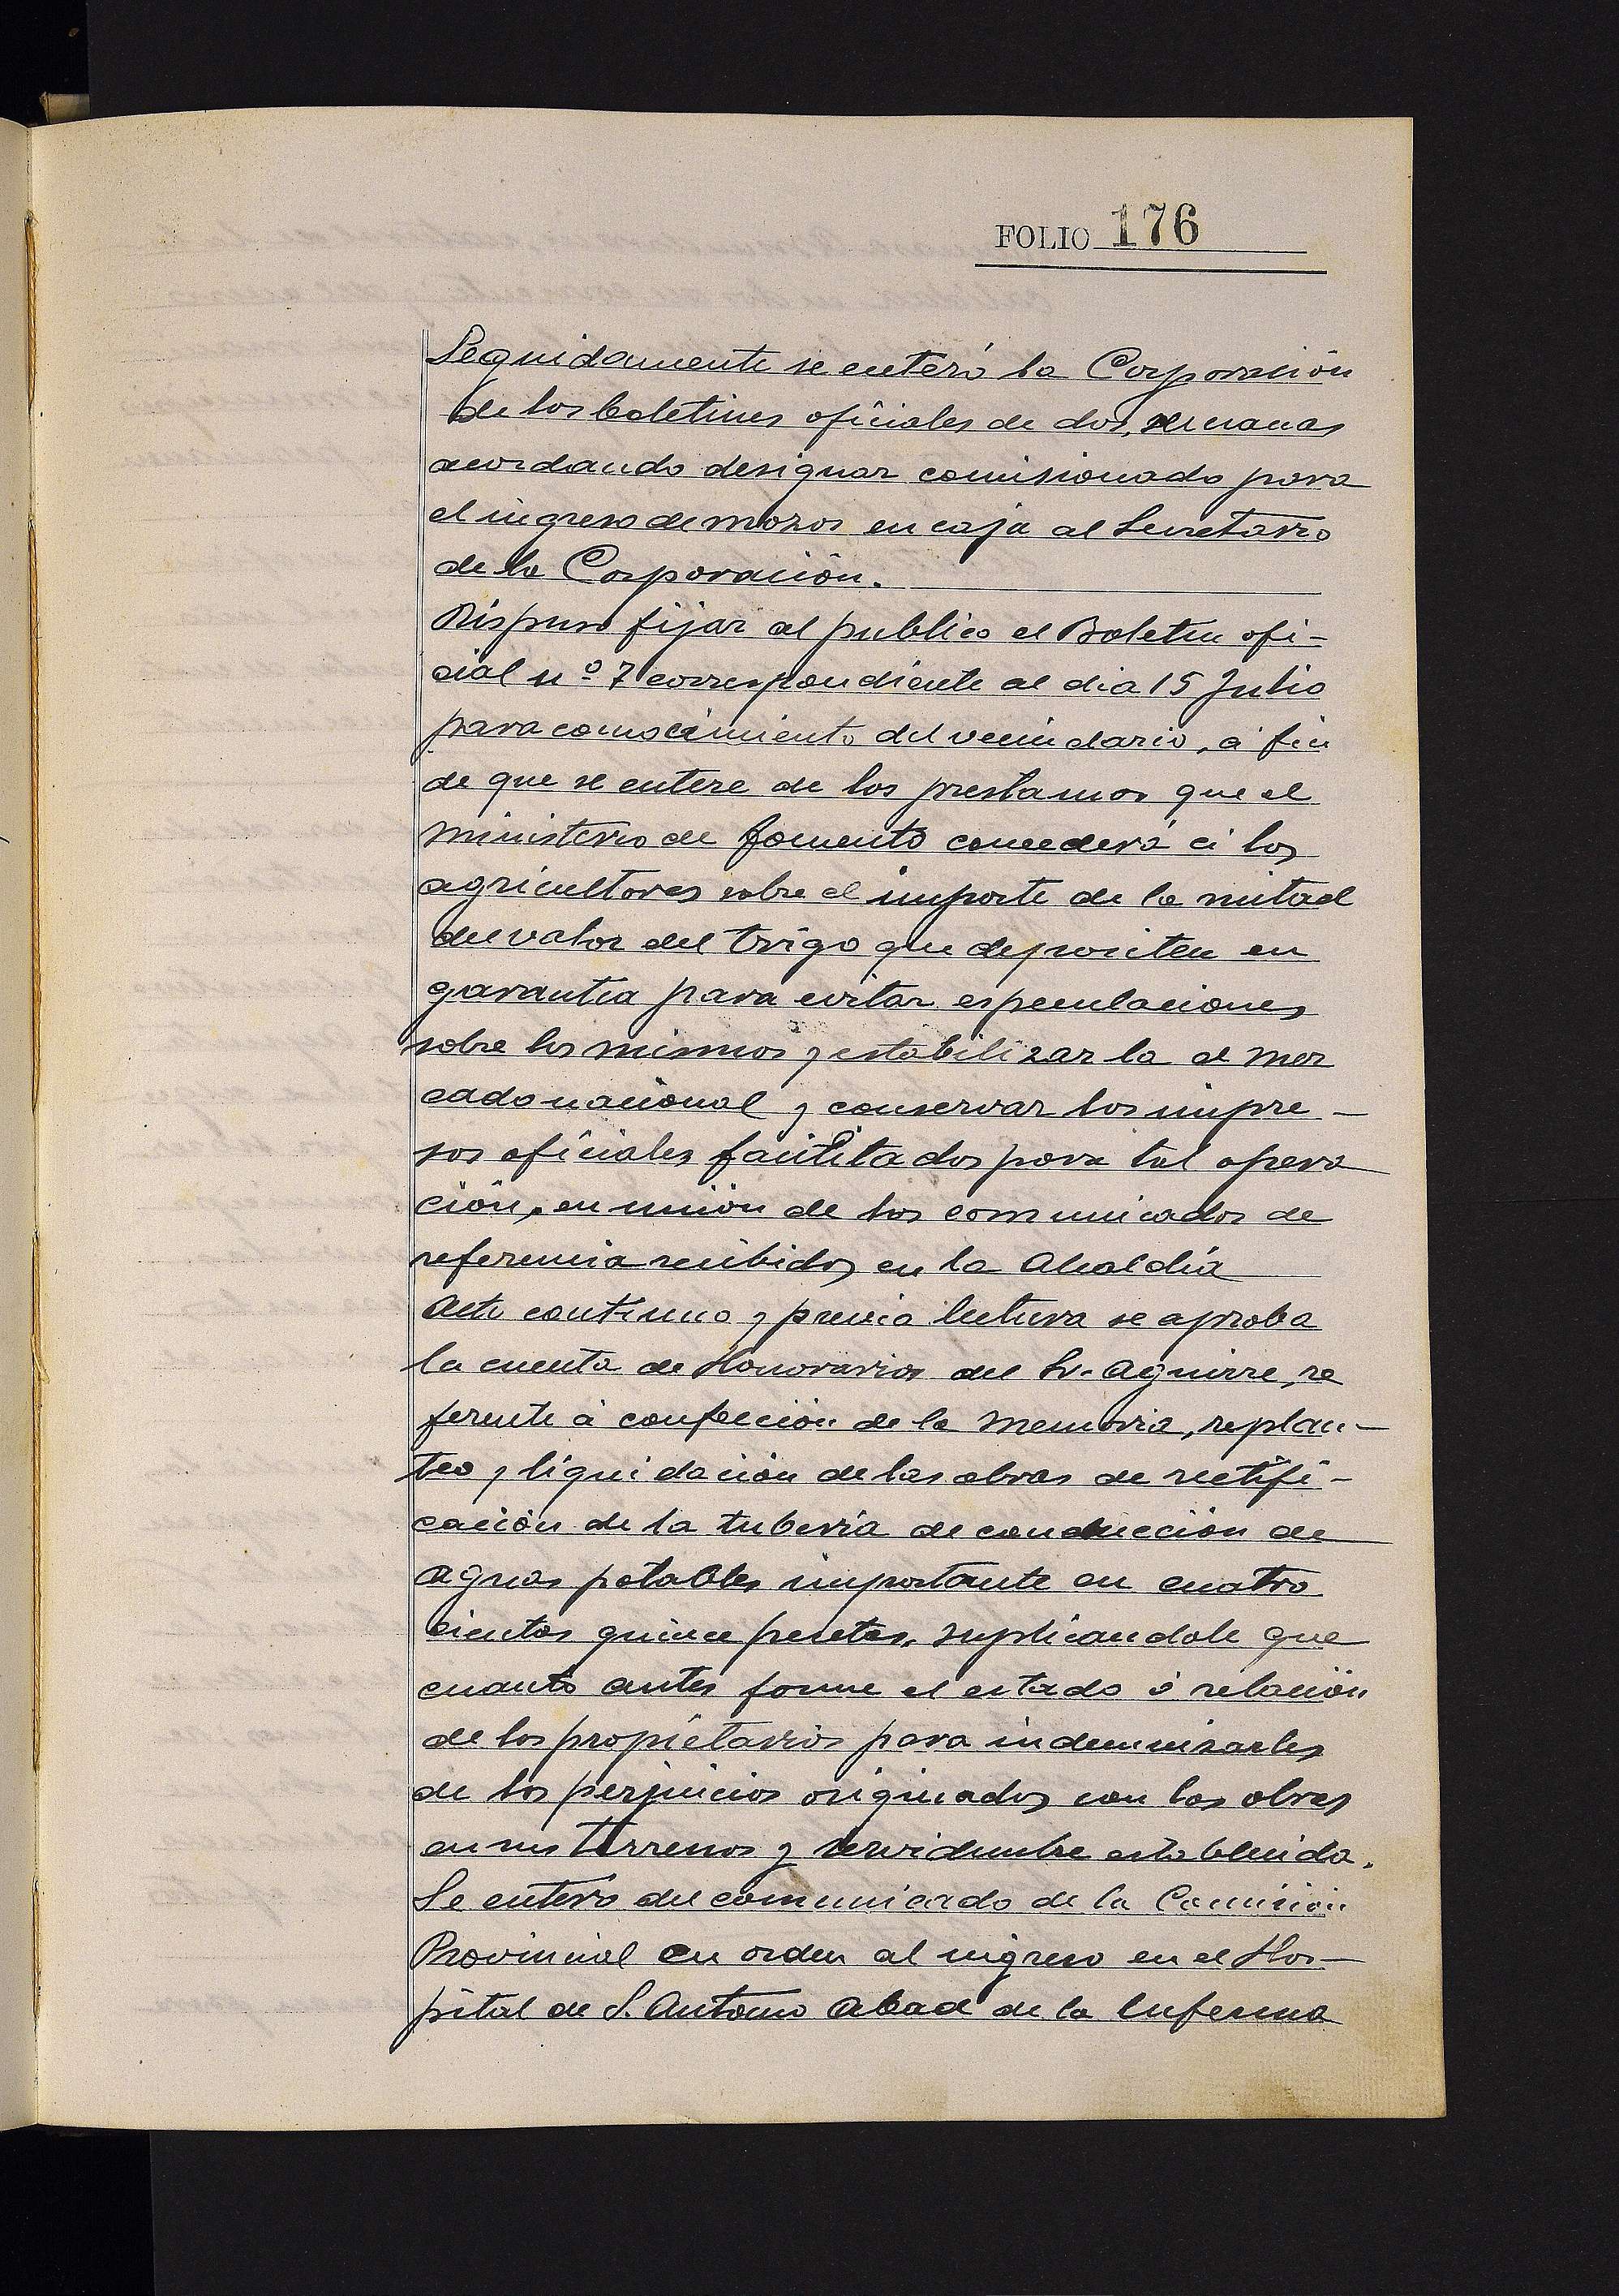 FOLIO 176
Seguidamente se enteró la Corporación
de los boletines oficiales de dos, semanas
acordando designar comisionado para
el ingreso de mozos en caja al Secretario
de la Corporación.
Dispuso fijar al publico el Boletin ofi-
cial nº 7 correspondiente al dia 15 Julio
para conocimiento del vecindario, á fin
de que se entere de los prestamos que el
Ministerio de fomento concederá á los
agricultores sobre el importe de la mitad
del valor del trigo que depositen en
garantia para evitar especulaciones
sobre los mismos y estabilizar la al mer
cado nacional y conservar los impre-
sos oficiales facilitados para tal opera
ción, en unión de los comunicados de
referencia recibidos en la Alcaldía
Acto continuo y previa lectura se aproba
la cuenta de Honorarios del Sr. Aguirre, re
ferente á confección de la Memoria, replan-
teo y liquidación de las obras de rectifi-
cación de la tuberia de conducción de
aguas potables importante en cuatro
cientos quince pesetas, suplicandole que
cuanto antes forme el estado ó relación
de los propietarios para indemnizarles
de los perjuicios originados con las obras
en sus terrenos y servidumbre establecida.
Se entero del comunicado de la Comisión
Provincial en orden al ingreso en el Hos-
pital de S. Antonio Abad de la enferma